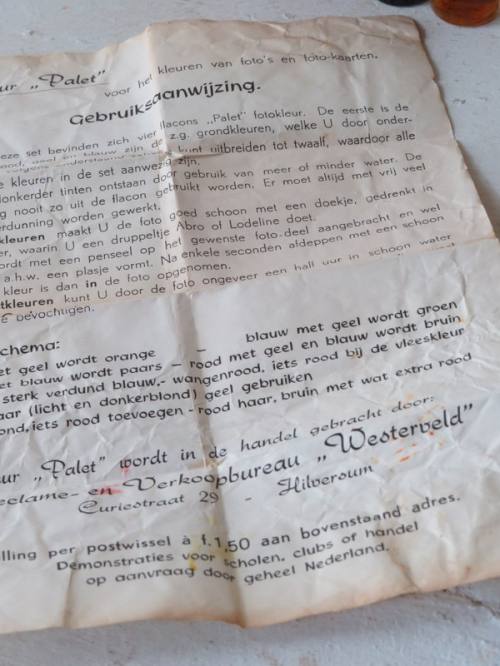 ur „Palet"
voor het kleuren van foto's en foto-kaarten.
Gebruiksaanwijzing.
eze set bevinden zich vier flacons „Palet" fotokleur. De eerste is de
rood, geel en blauw zijn de z.g. grondkleuren, welke U door onder-
kunt uitbreiden tot twaalf, waardoor alle
e kleuren in de set aanwezig zijn.
donkerder tinten ontstaan door gebruik van meer of minder water. De
g nooit zo uit de flacon gebruikt worden. Er moet altijd met vrij veel
erdunning worden gewerkt.
kleuren maakt U de foto goed schoon met een doekje, gedrenkt in
er, waarin U een druppeltje Abro of Lodeline doet.
ordt met een penseel op het gewenste foto-deel aangebracht en wel
a.h.w. een plasje vormt. Na enkele seconden afdeppen met een schoon
kleur is dan in de foto opgenomen.
tkleuren kunt U door de foto ongeveer een half uur in schoon water
te bevochtigen.
chema:
et geel wordt orange – blauw met geel wordt groen
et blauw wordt paars – rood met geel en blauw wordt bruin
sterk verdund blauw,- wangenrood, iets rood bij de vleeskleur
aar (licht en donkerblond) geel gebruiken
ond, iets rood toevoegen - rood haar, bruin met wat extra rood
ur „Palet" wordt in de handel gebracht door:
eclame- en Verkoopbureau „Westerveld"
Curiestraat 29 - Hilversum
lling per postwissel à f.1,50 aan bovenstaand adres.
Demonstraties voor scholen, clubs of handel
op aanvraag door geheel Nederland.